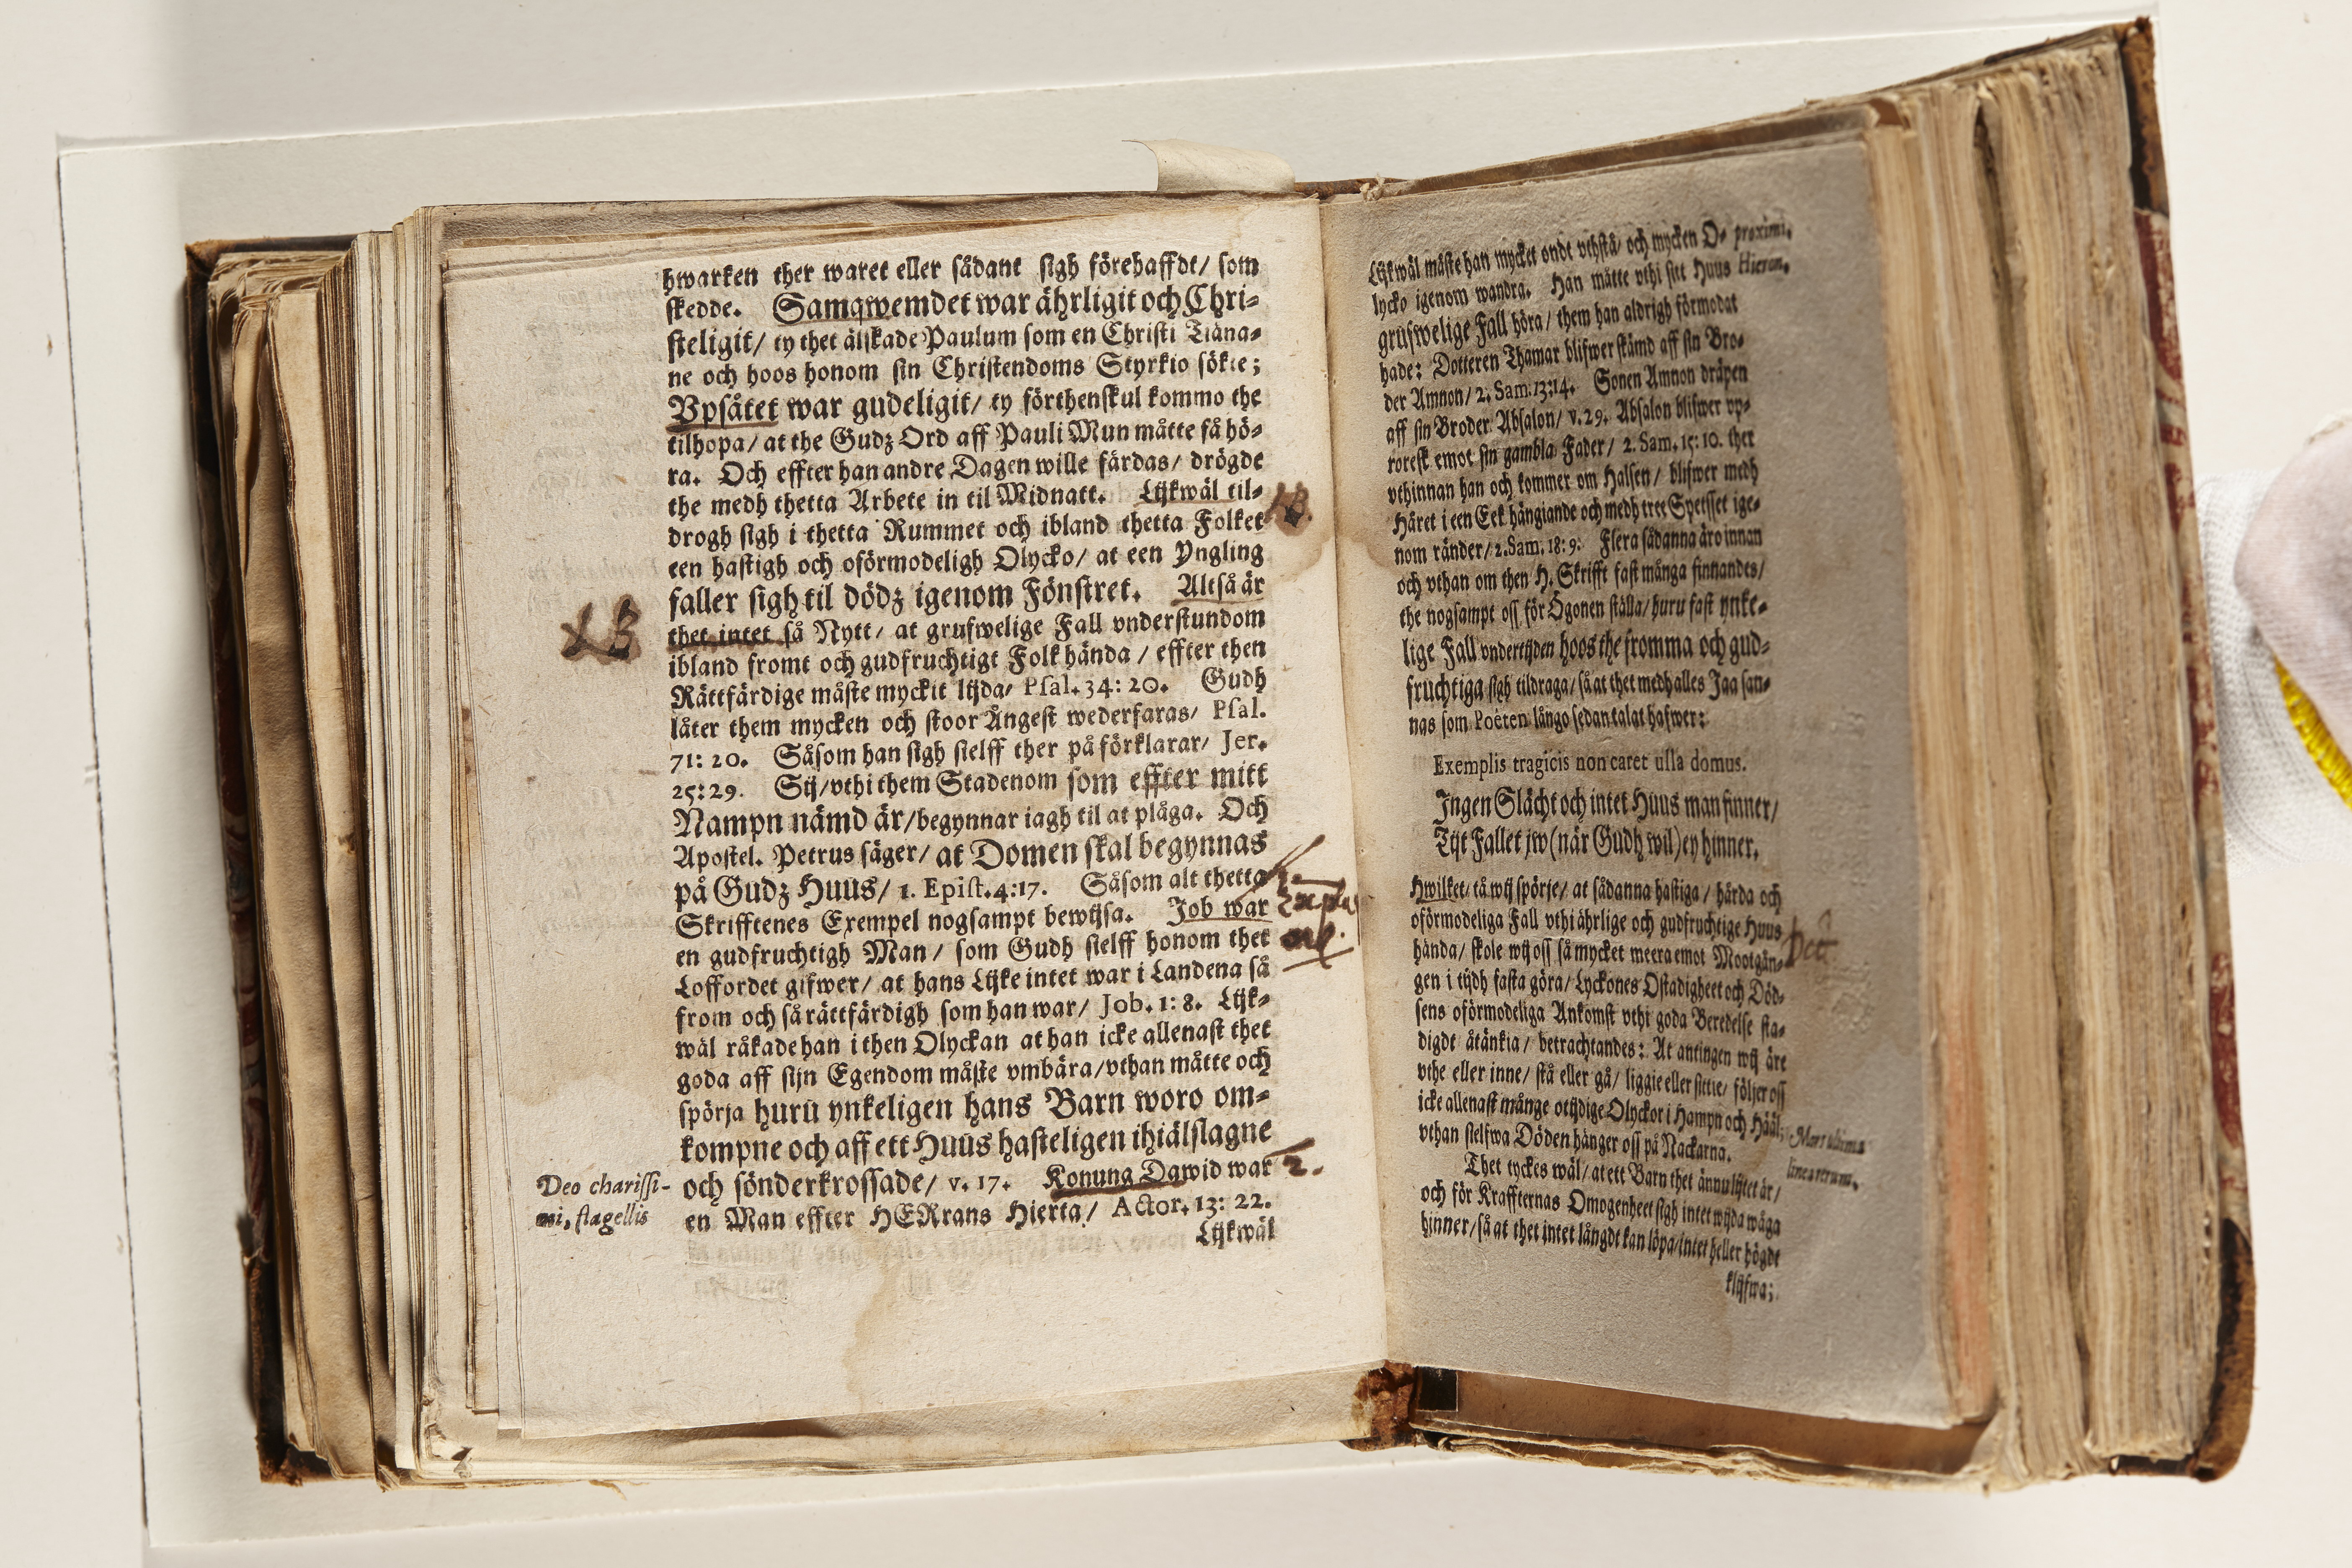 hwarken ther waret eller sådant sigh förehaffdt/ som
skedde. Samqwemdet war ährligit och Chri-
steligit/ ty thet älskade Paulum som en Christi Tiäna-
ne och hoos honom sin Christendoms Styrkio sökte;
Vpsåtet war gudeligit/ ty förthenskul kommo the
tilhopa/ at the Gudz Ord aff Pauli Mun måtte få hö-
ra. Och effter han andre Dagen wille färdas/ drögde
the medh thetta Arbete in til Midnatt. Lijkwäl til-
drogh sigh i thetta Rummet och ibland thetta Folket
NB.
een hastigh och oförmodeligh Olycko/ at een Yngling
faller sigh til dödz igenom Fönstret. Altså är
NB
thet intet så Nytt/ at grufwelige Fall vnderstundom
ibland fromt och gudfruchtigt Folk hända/ effter then
Rättfärdige måste myckit lijda/ Psal. 34: 20. Gudh
låter them mycken och stoor Ångest wederfaras/ Psal.
71: 20. Såsom han sigh sielff ther på förklarar/ Jer.
25: 29. Sij/ vthi them Stadenom som effter mitt
Nampn nämd är/ begynnar iagh til at plåga. Och
Apostel. Petrus säger/ at Domen skal begynnas
på Gudz Huus/ 1. Epist. 4: 17. Såsom alt thetta
Skrifftenes Exempel nogsampt bewijsa. Job war
1.
en gudfruchtigh Man/ som Gudh sielff honom thet
Loffordet gifwer/ at hans Lijke intet war i Landena så
from och så rättfärdigh som han war/ Job. 1: 8. Lijk-
wäl råkade han i then Olyckan at han icke allenast thet
goda aff sijn Egendom måste vmbära/ vthan måtte och
spörja huru ynkeligen hans Barn woro om-
kompne och aff ett Huus hasteligen ihiälslagne
och sönderkrossade/ v. 17. Konung Dawid war
2.
en Man effter HERrans Hierta/ Actor. 13: 22.
Deo charissi-
mi, flagellis
Lijkwäl
Lijkwäl måste han mycket ondt vthstå/ och mycken O-
lycko igenom wandra. Han måtte vthi sitt Huus
proximi.
Hieron.
grufwelige Fall höra/ them han aldrigh förmodat
hade: Dotteren Thamar blifwer skämd aff sin Bro-
der Amnon/ 2. Sam. 13: 14. Sonen Amnon dräpen
aff sin Broder Absalon/ v. 29. Absalon blifwer vp-
roresk emot sin gambla Fader/ 2. Sam. 15: 10. ther
vthinnan han och kommer om Halsen/ blifwer medh
Håret i een Eek hängiande och medh tree Spetsset ige-
nom ränder/ 2. Sam. 18: 9. Flera sådanna äro innan
och vthan om then H. Skrifft fast många finnandes/
the nogsampt oss för Ögonen ställa/ huru fast ynke-
lige Fall vndertijden hoos the fromma och gud-
fruchtiga sigh tildraga/ så at thet medh alles Jaa san-
nas som Poëten långo sedan talat hafwer:
Exemplis tragicis non caret ulla domus.
Ingen Slächt och intet Huus man finner/
Tijt Fallet jw (når Gudh wil) ey hinner.
Hwilket/ tå wij spörje/ at sådanna hastiga/ hårda och
oförmodeliga Fall vthi ährlige och gudfruchtige Huus
hända/ skole wij oss så mycket meera emot Mootgån-
gen i tijdh fasta göra/ Lyckones Ostadigheet och Död-
sens oförmodeliga Ankomst vthi goda Beredelse sta-
digdt åtänkia/ betrachtandes: At antingen wij äre
vthe eller inne/ stå eller gå/ liggie eller sittie/ följer oss
icke allenast månge otijdige Olyckor i Hampn och Hääl,
vthan sielfwa Döden hänger oss på Nackarna.
Mors ultima
linea rerum.
Thet tyckes wäl/ at ett Barn thet ännu lijtet är/
och för Kraffternas Omogenheet sigh intet wijda wåga
hinner/ så at thet intet långdt kan löpa/ intet heller högdt
klijfwa;